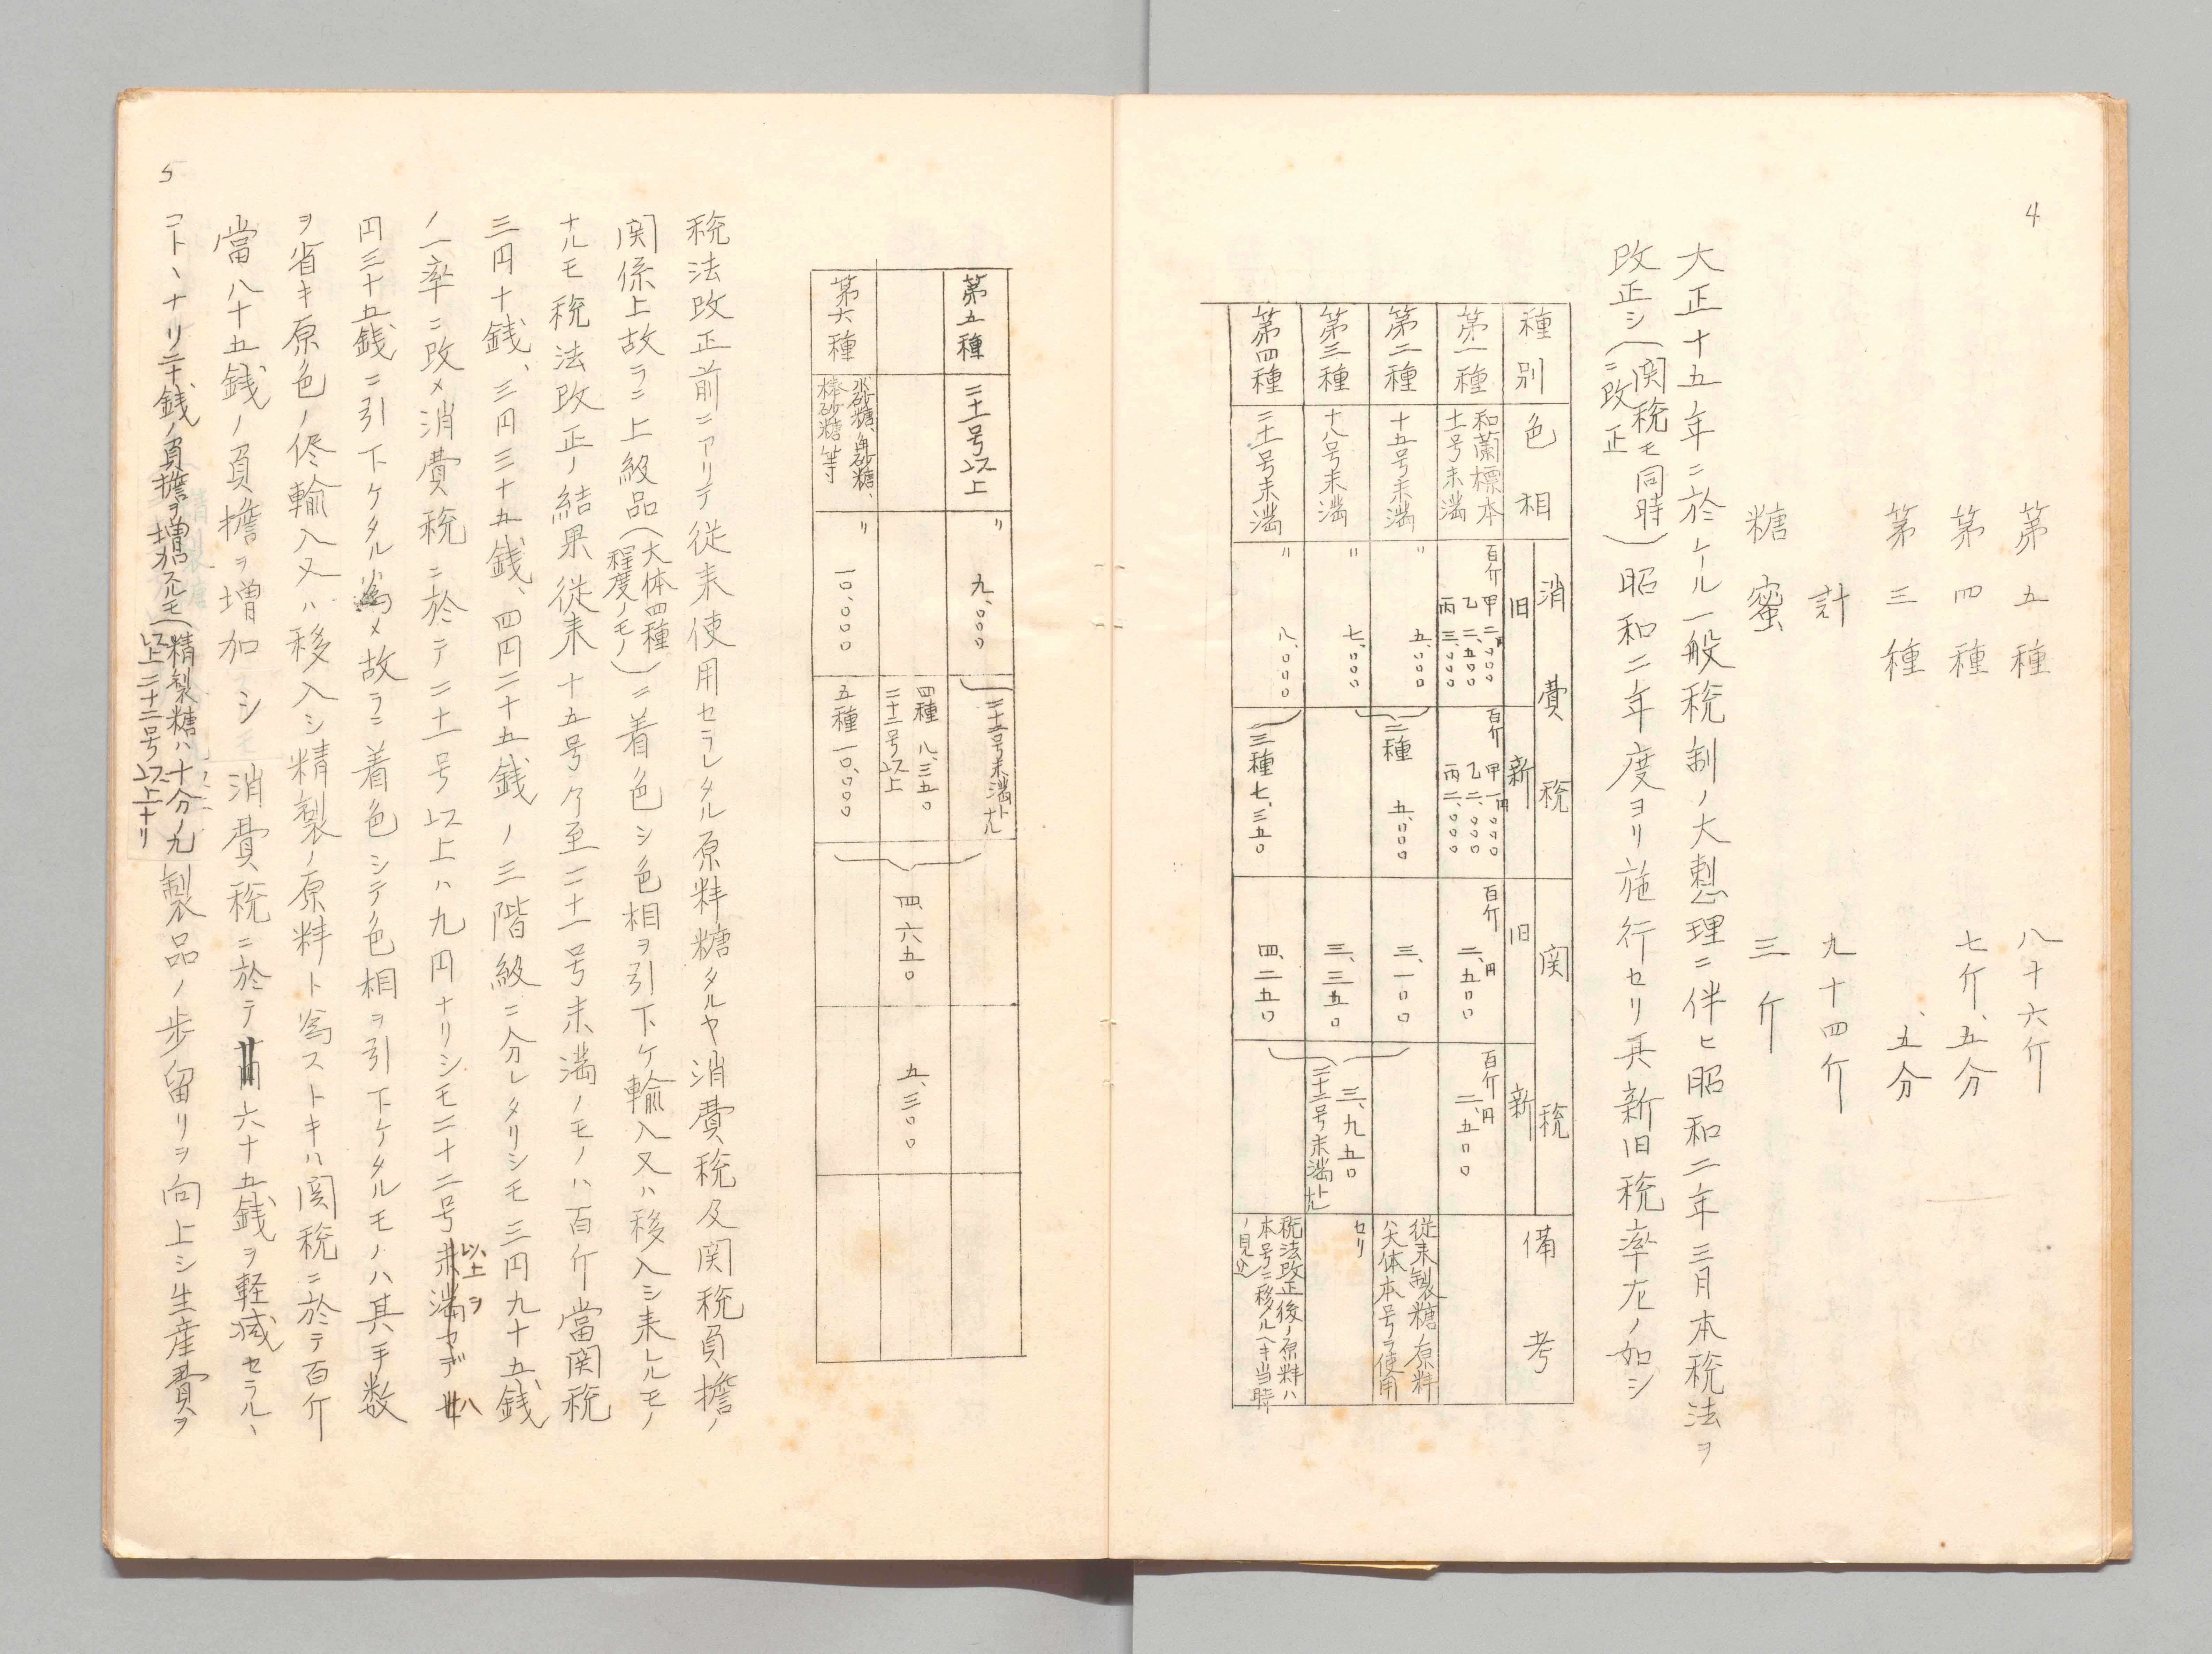 4
第五種 八十六斤
第四種 七斤、五分
第三種 、五分
計 九十四斤
糖蜜 三斤
大正十五年ニ於ケル一般税制ノ大整理ニ伴ヒ昭和二年三月本税法ヲ
改正シ(関税モ同時ニ改正)昭和二年度ヨリ施行セリ其新旧税率左ノ如シ
種別 色相 消費税 旧 新 関税 旧 新 備考
第一種 和蘭標本十一号未満 百斤 甲 二円、〇〇〇 乙 二、五〇〇 丙 三、〇〇〇 百斤 甲 一円、〇〇〇 乙 二、〇〇〇 丙 二、〇〇〇 百斤 二円、五〇〇 百斤 二円、五〇〇
第二種 十五号未満 〃 五、〇〇〇 二種 五、〇〇〇 三、一〇〇 従来製糖ノ原料ハ大体本号ヲ使用
第三種 十八号未満 〃 七、〇〇〇 三、三五〇 三、九五〇 二十二号未満トナル セリ
第四種 二十一号未満 〃 八、〇〇〇 三種 七、三五〇 四、二五〇 税法改正後ノ原料ハ本号ニ移ルヘキ当時ノ見込
第五種 二十一号以上 〃 九、〇〇〇 二十二号未満トナル
四種 八、三五〇 二十二号以上 四、六五〇 五、三〇〇
第六種 氷砂糖、角砂糖、棒砂糖等 〃 一〇、〇〇〇 五種 一〇、〇〇〇
税法改正前ニアリテ従来使用セラレタル原料糖タルヤ消費税及関税負擔ノ
関係上故ラニ上級品(大体四種程度ノモノ)ニ着色シ色相ヲ引下ケ輸入又ハ移入シ来レルモノ
ナルモ税法改正ノ結果従来十五号乃至二十一号未満ノモノハ百斤當関税
三円十銭、三円三十五銭、四円二十五銭ノ三階級ニ分レタリシモ三円九十五銭
ノ一率ニ改メ消費税ニ於テ二十一号以上ハ九円ナリシモ二十二号以上ヲ八
円三十五銭ニ引下ケタル為メ故ラニ着色シテ色相ヲ引下ケタルモノハ其手数
ヲ省キ原色ノ侭輸入又ハ移入シ精製ノ原料ト為ストキハ関税ニ於テ百斤
當八十五銭ノ負擔ヲ増加シモ消費税ニ於テ六十五銭ヲ軽減セラルヽ
コトヽナリ二十銭ノ負擔ヲ増加スルモ(精製糖ハ十分ノ九以上二十二号以上ナリ)製品ノ歩留リヲ向上シ生産費ヲ
5